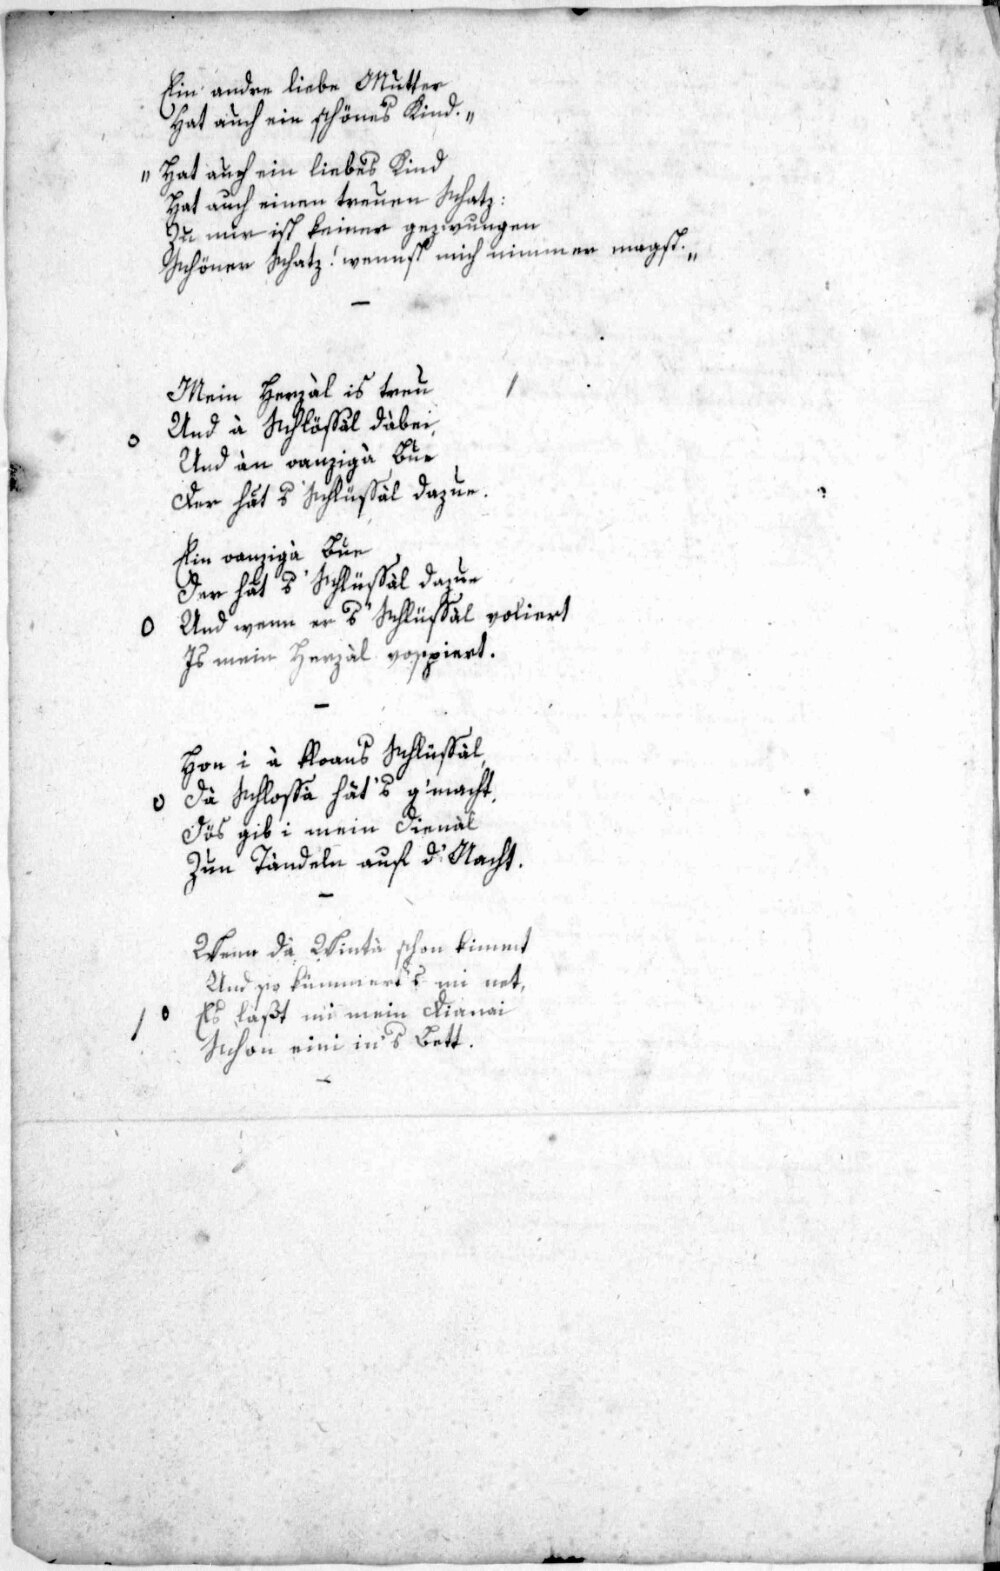 Ein andre liebe Mutter
Hat auch ein schönes Kind."
" Hat auch ein liebes Kind
Hat auch einen treuen Schatz:
Zu mir ist keiner gezwungen
Schöner Schatz! wennst mich nimmer magst."
–
Mein Herzàl is treu
Und à Schlössàl dàbei,
Und àn oanzigà Bue
Der håt s' Schlüssàl dazue.
Ein oanzigà Bue
Der håt s' Schlüssàl dazue
Und wenn er s' Schlüssàl voliert
Is mein Herzàl vospiert.
–
Hon i à kloans Schlüssàl,
Dà Schlossà hàt's g'macht,
Dös gib i mein Dienàl
Zun Tàndeln auf d' Nacht.
–
Wenn dà Wintà schon kimmt
Und so kümmert's mi net,
Es laßt mi mein Dianai
Schon eini in's Bett.
–